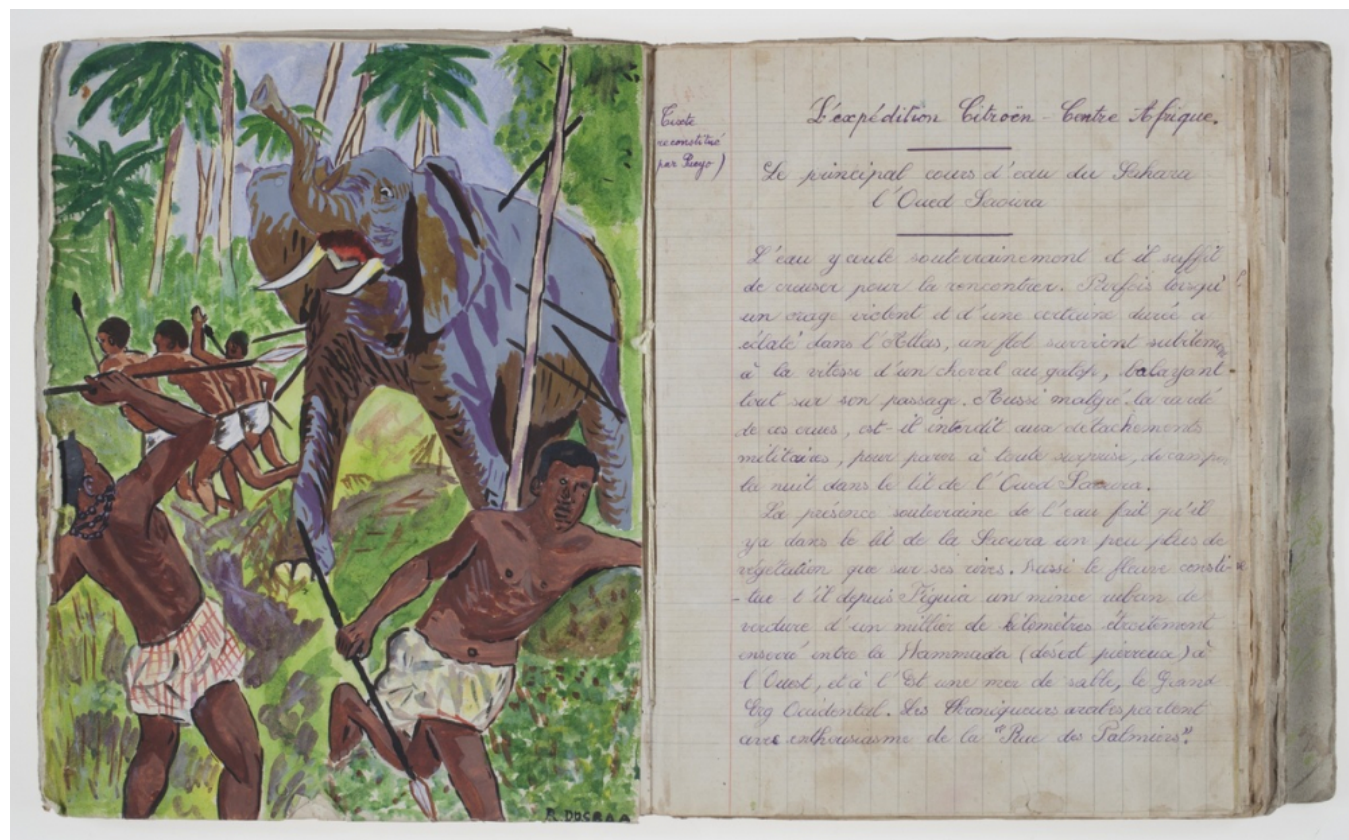 Texte
reconstitué
par Pueyo)
L'expédition Citroën - Centre Afrique.
Le principal cours d'eau du Sahara
l'Oued Saoura
L'eau y coule souterrainement et il suffit
de creuser pour la rencontrer. Parfois lorsqu'
un orage violent et d'une certaine durée a
éclaté dans l'Atlas, un flot survient subitement
à la vitesse d'un cheval au galop, balayant
tout sur son passage. Aussi malgré la rareté
de ces crues, est-il interdit aux détachements
militaires, pour parer à toute surprise, de camper
la nuit dans le lit de l'Oued Saoura.
La présence souterraine de l'eau fait qu'il
y a dans le lit de la Saoura un peu plus de
végétation que sur ses rives. Aussi le fleuve consti-
-tue t'il depuis Figuia un mince ruban de
verdure d'un millier de kilomètres étroitement
enserré entre la Hammada (désert pierreux) à
l'Ouest, et à l'Est une mer de sable, le Grand
Erg Occidental. Les Chroniqueurs arabes parlent
avec enthousiasme de la "Rue des Palmiers".